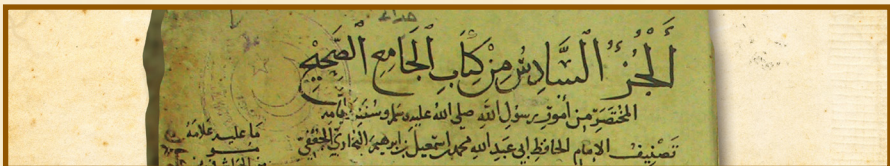 الْجُزْءُ السَّادِسُ مِنْ كِتَابِ الْجَامِعِ الصَّحِيحِ
المختصر من أمور رسول الله صلى الله عليه وسلم وسننه وأيامه
تصنيف الإمام الحافظ أبي عبد الله محمد بن إسمعيل بن إبراهيم البخاري الجعفي
ما عليه علامة